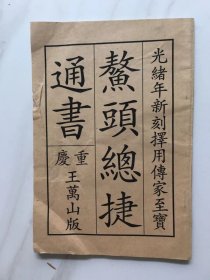 光緒年新刻擇用傳家至寶
鰲頭總捷
通書
重慶
王萬山版